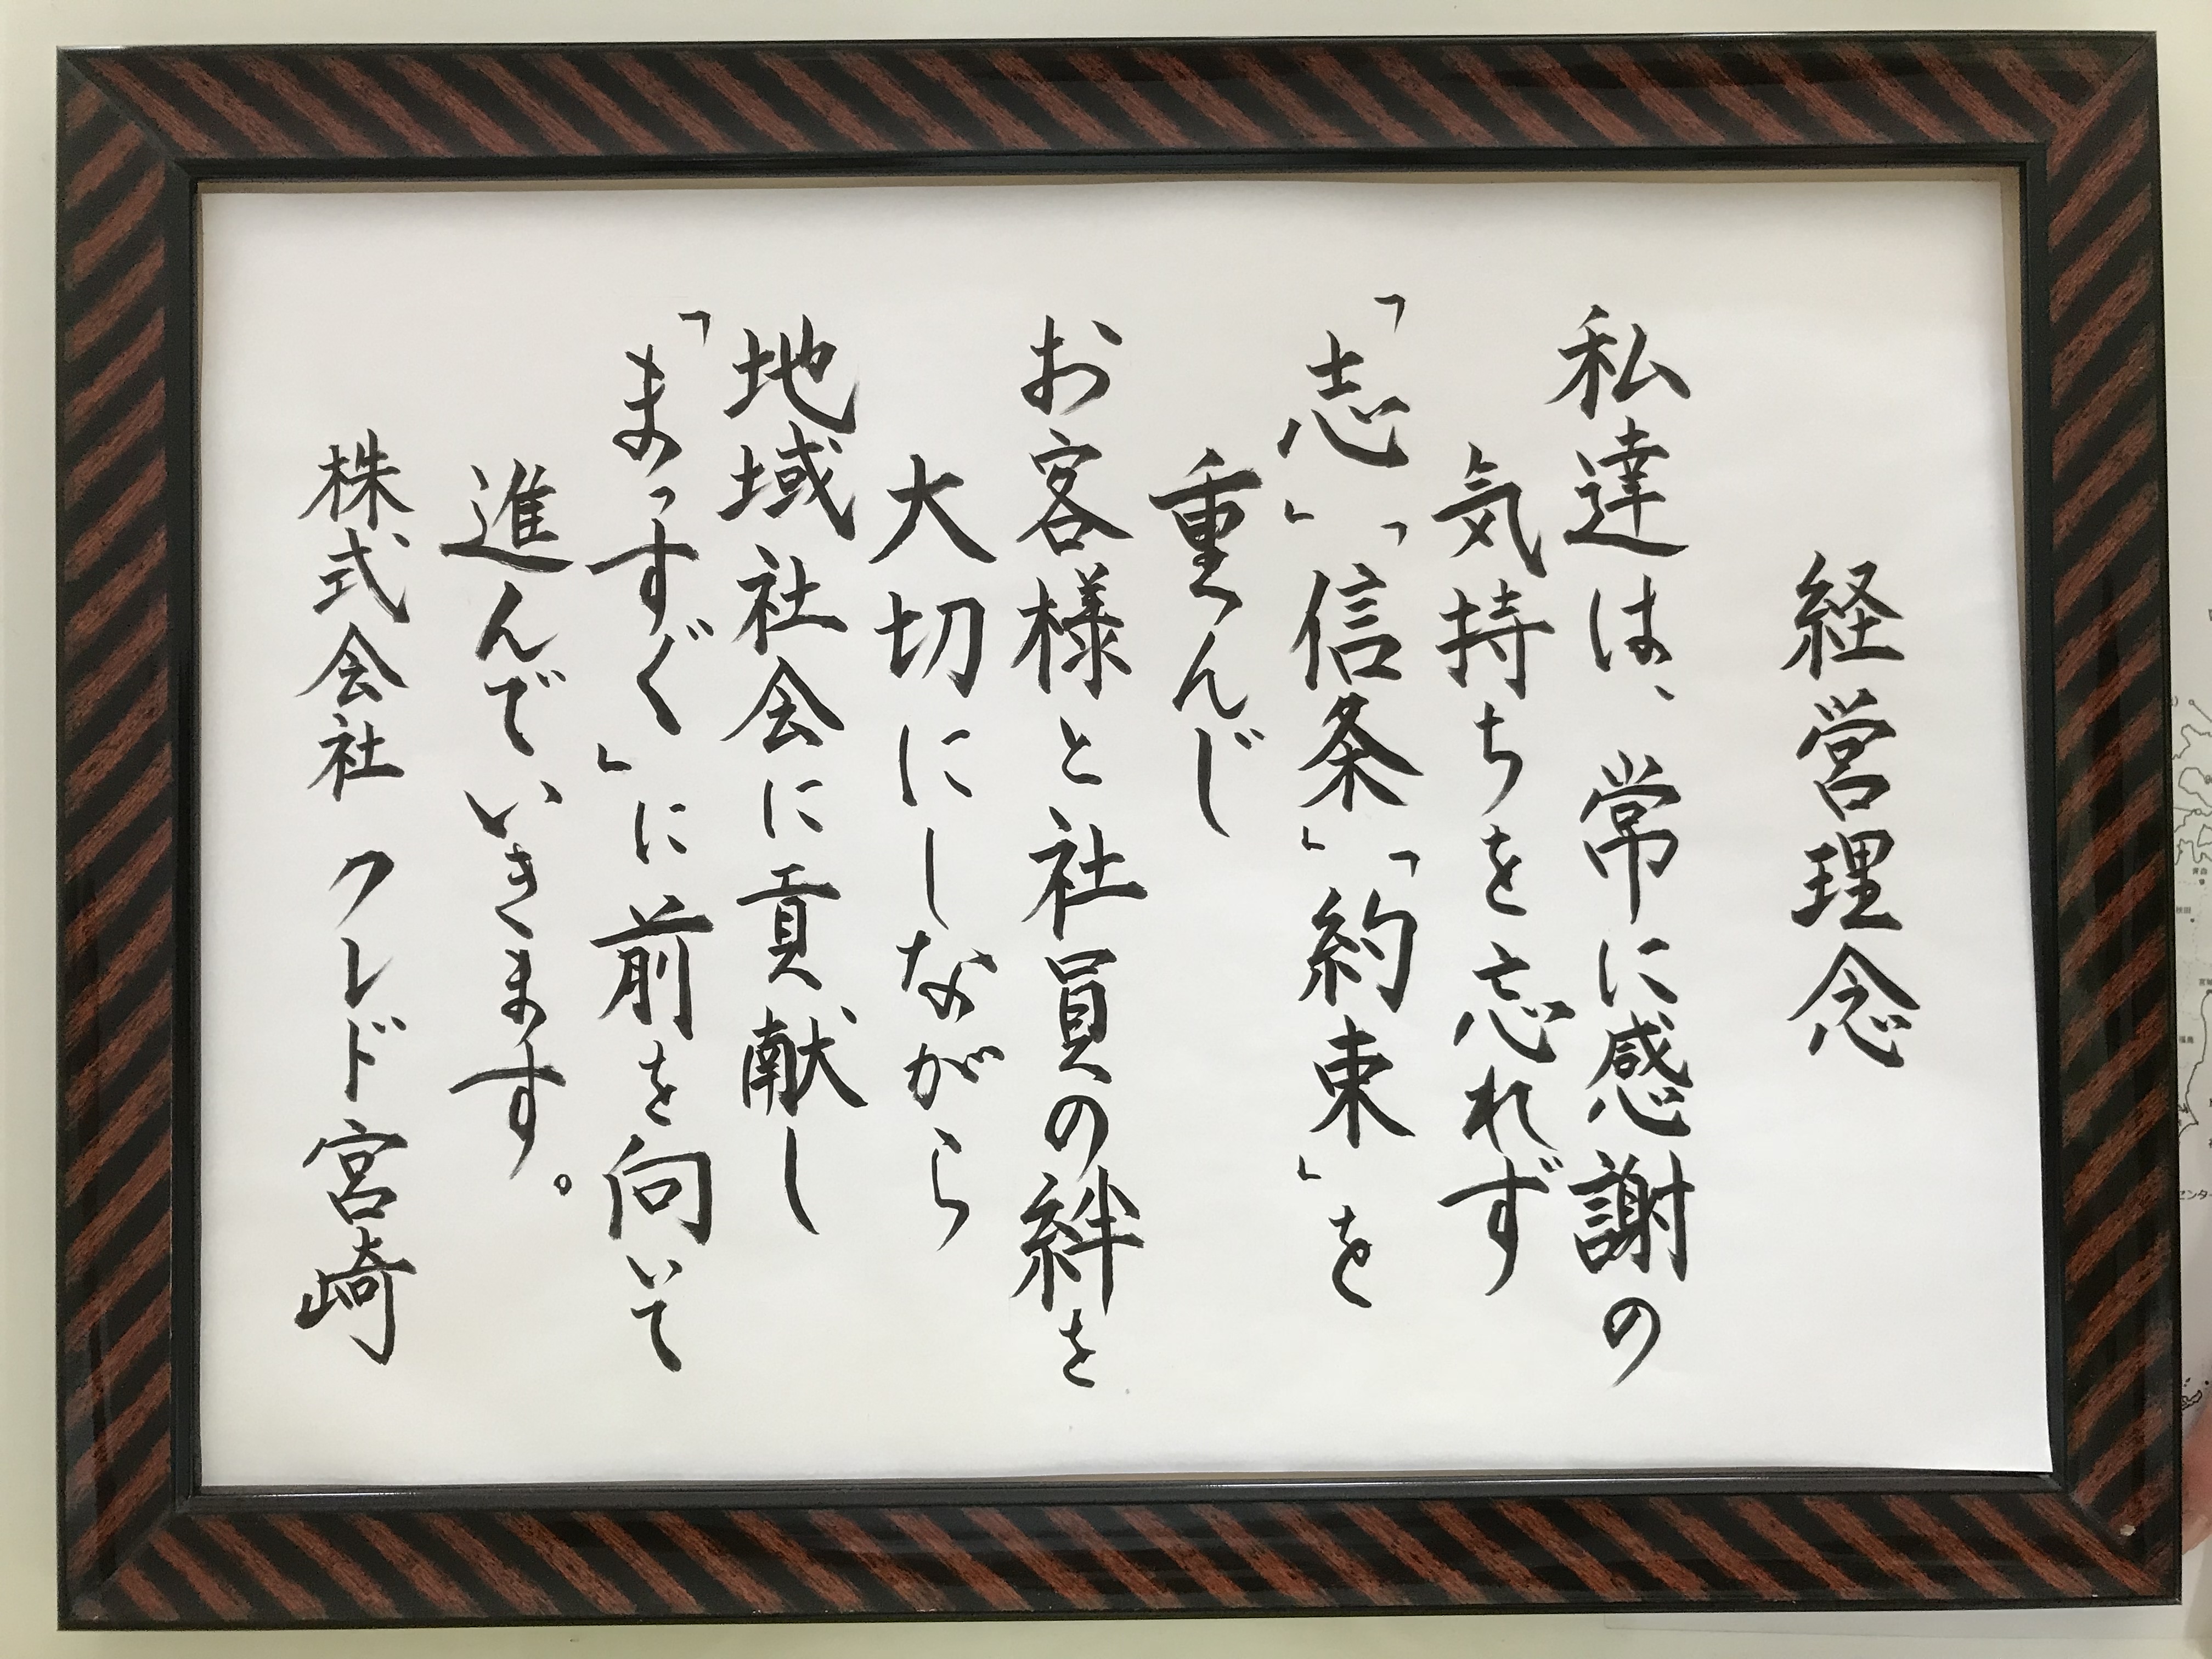 経営理念
私達は、常に感謝の
気持ちを忘れず
「志」「信条」「約束」を
重んんじ
お客様と社員の絆を
大切にしながら
地域社会に貢献し
「まっすぐ」に前を向いて
進んでいきます。
株式会社 クレド宮崎